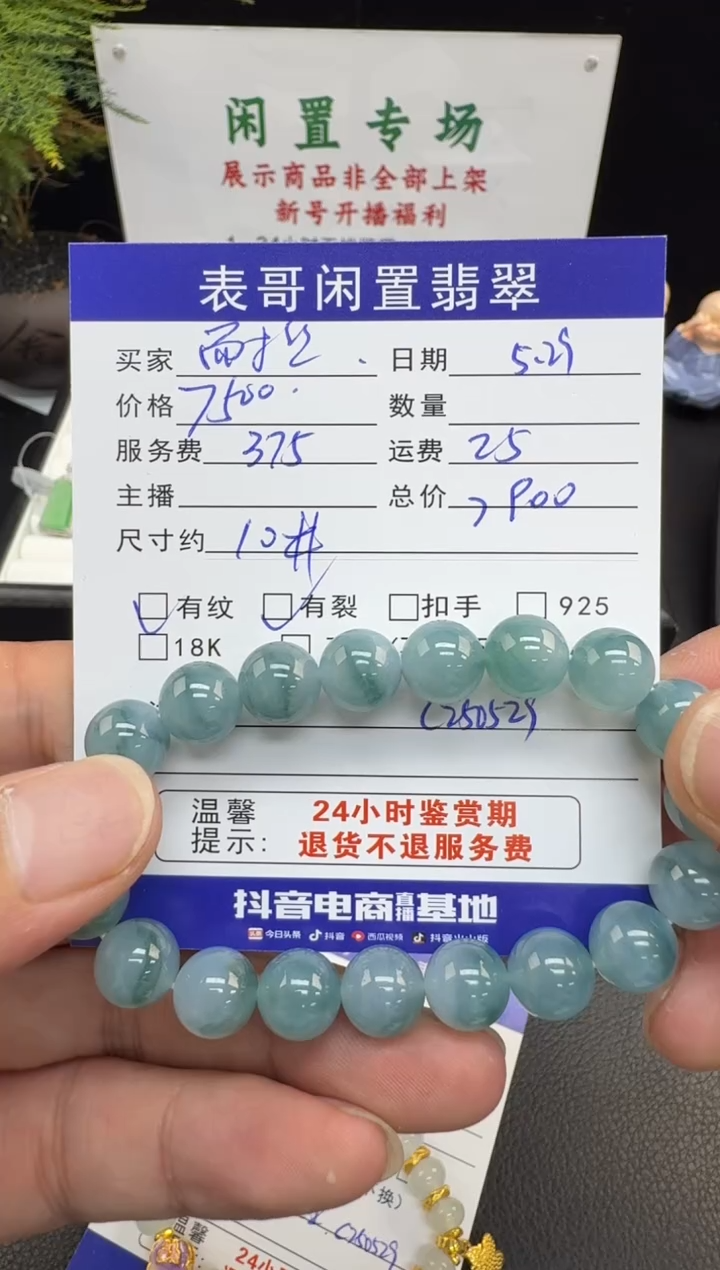 闲置专场
展示商品非全部上架
新号开播福利
表哥闲置翡翠
买家 日期 5.29
价格 7500 数量
服务费 375 运费 25
主播 总价 7900
尺寸约 10#
有纹 有裂 扣手 925
18K
C250529
温馨 24小时鉴赏期
提示: 退货不退服务费
抖音电商直播基地
今日头条 抖音 西瓜视频 抖音火山版
换)
C250529
温馨
24小